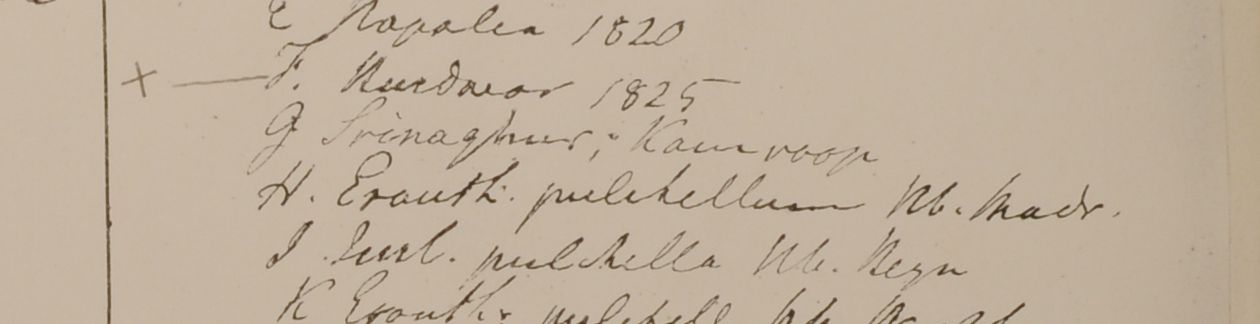 E Napalia 1820
F. Hurdwar 1825
G Srinaghur; Kamroop
H. Eranth. pulchellum Hb. Madr.
I Just. pulchella Hb. Heyn
K Eranth. pulchell Hb.